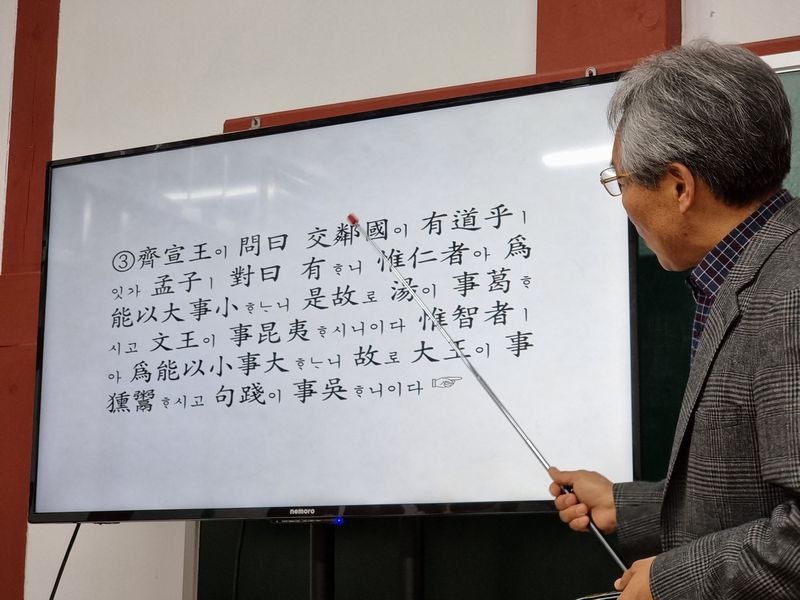 ③齊宣王이 問曰 交鄰國이 有道乎ㅣ
잇가 孟子ㅣ 對曰 有ᄒᆞ니 惟仁者아 爲
能以大事小ᄒᆞᄂᆞ니 是故로 湯이 事葛ᄒᆞ
시고 文王이 事昆夷ᄒᆞ시니이다 惟智者ㅣ
아 爲能以小事大ᄒᆞᄂᆞ니 故로 大王이 事
獯鬻ᄒᆞ시고 句踐이 事吳ᄒᆞ니이다 ☞
nemoro